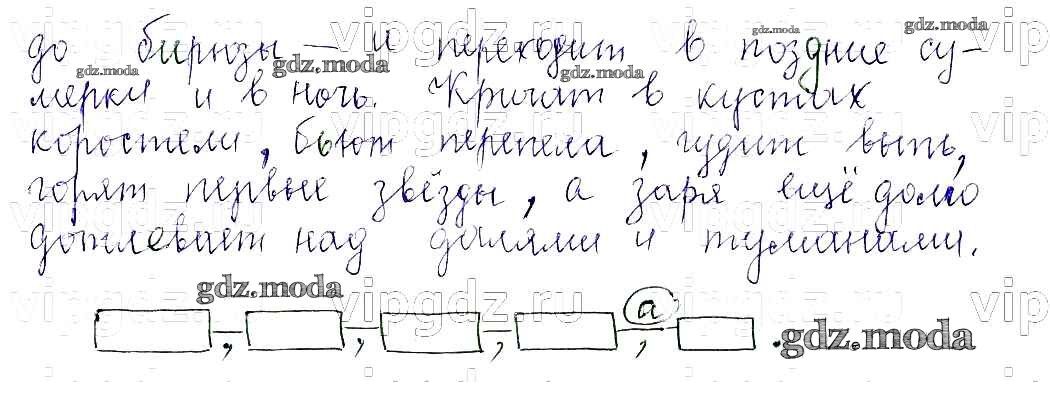 до бирюзы – и переходит в поздние су-
мерки и в ночь. Кричат в кустах
коростели, бьют перепела, гудит выпь,
горят первые звёзды, а заря ещё долго
дотлевает над далями и туманами.
gdz.moda
а
gdz.moda